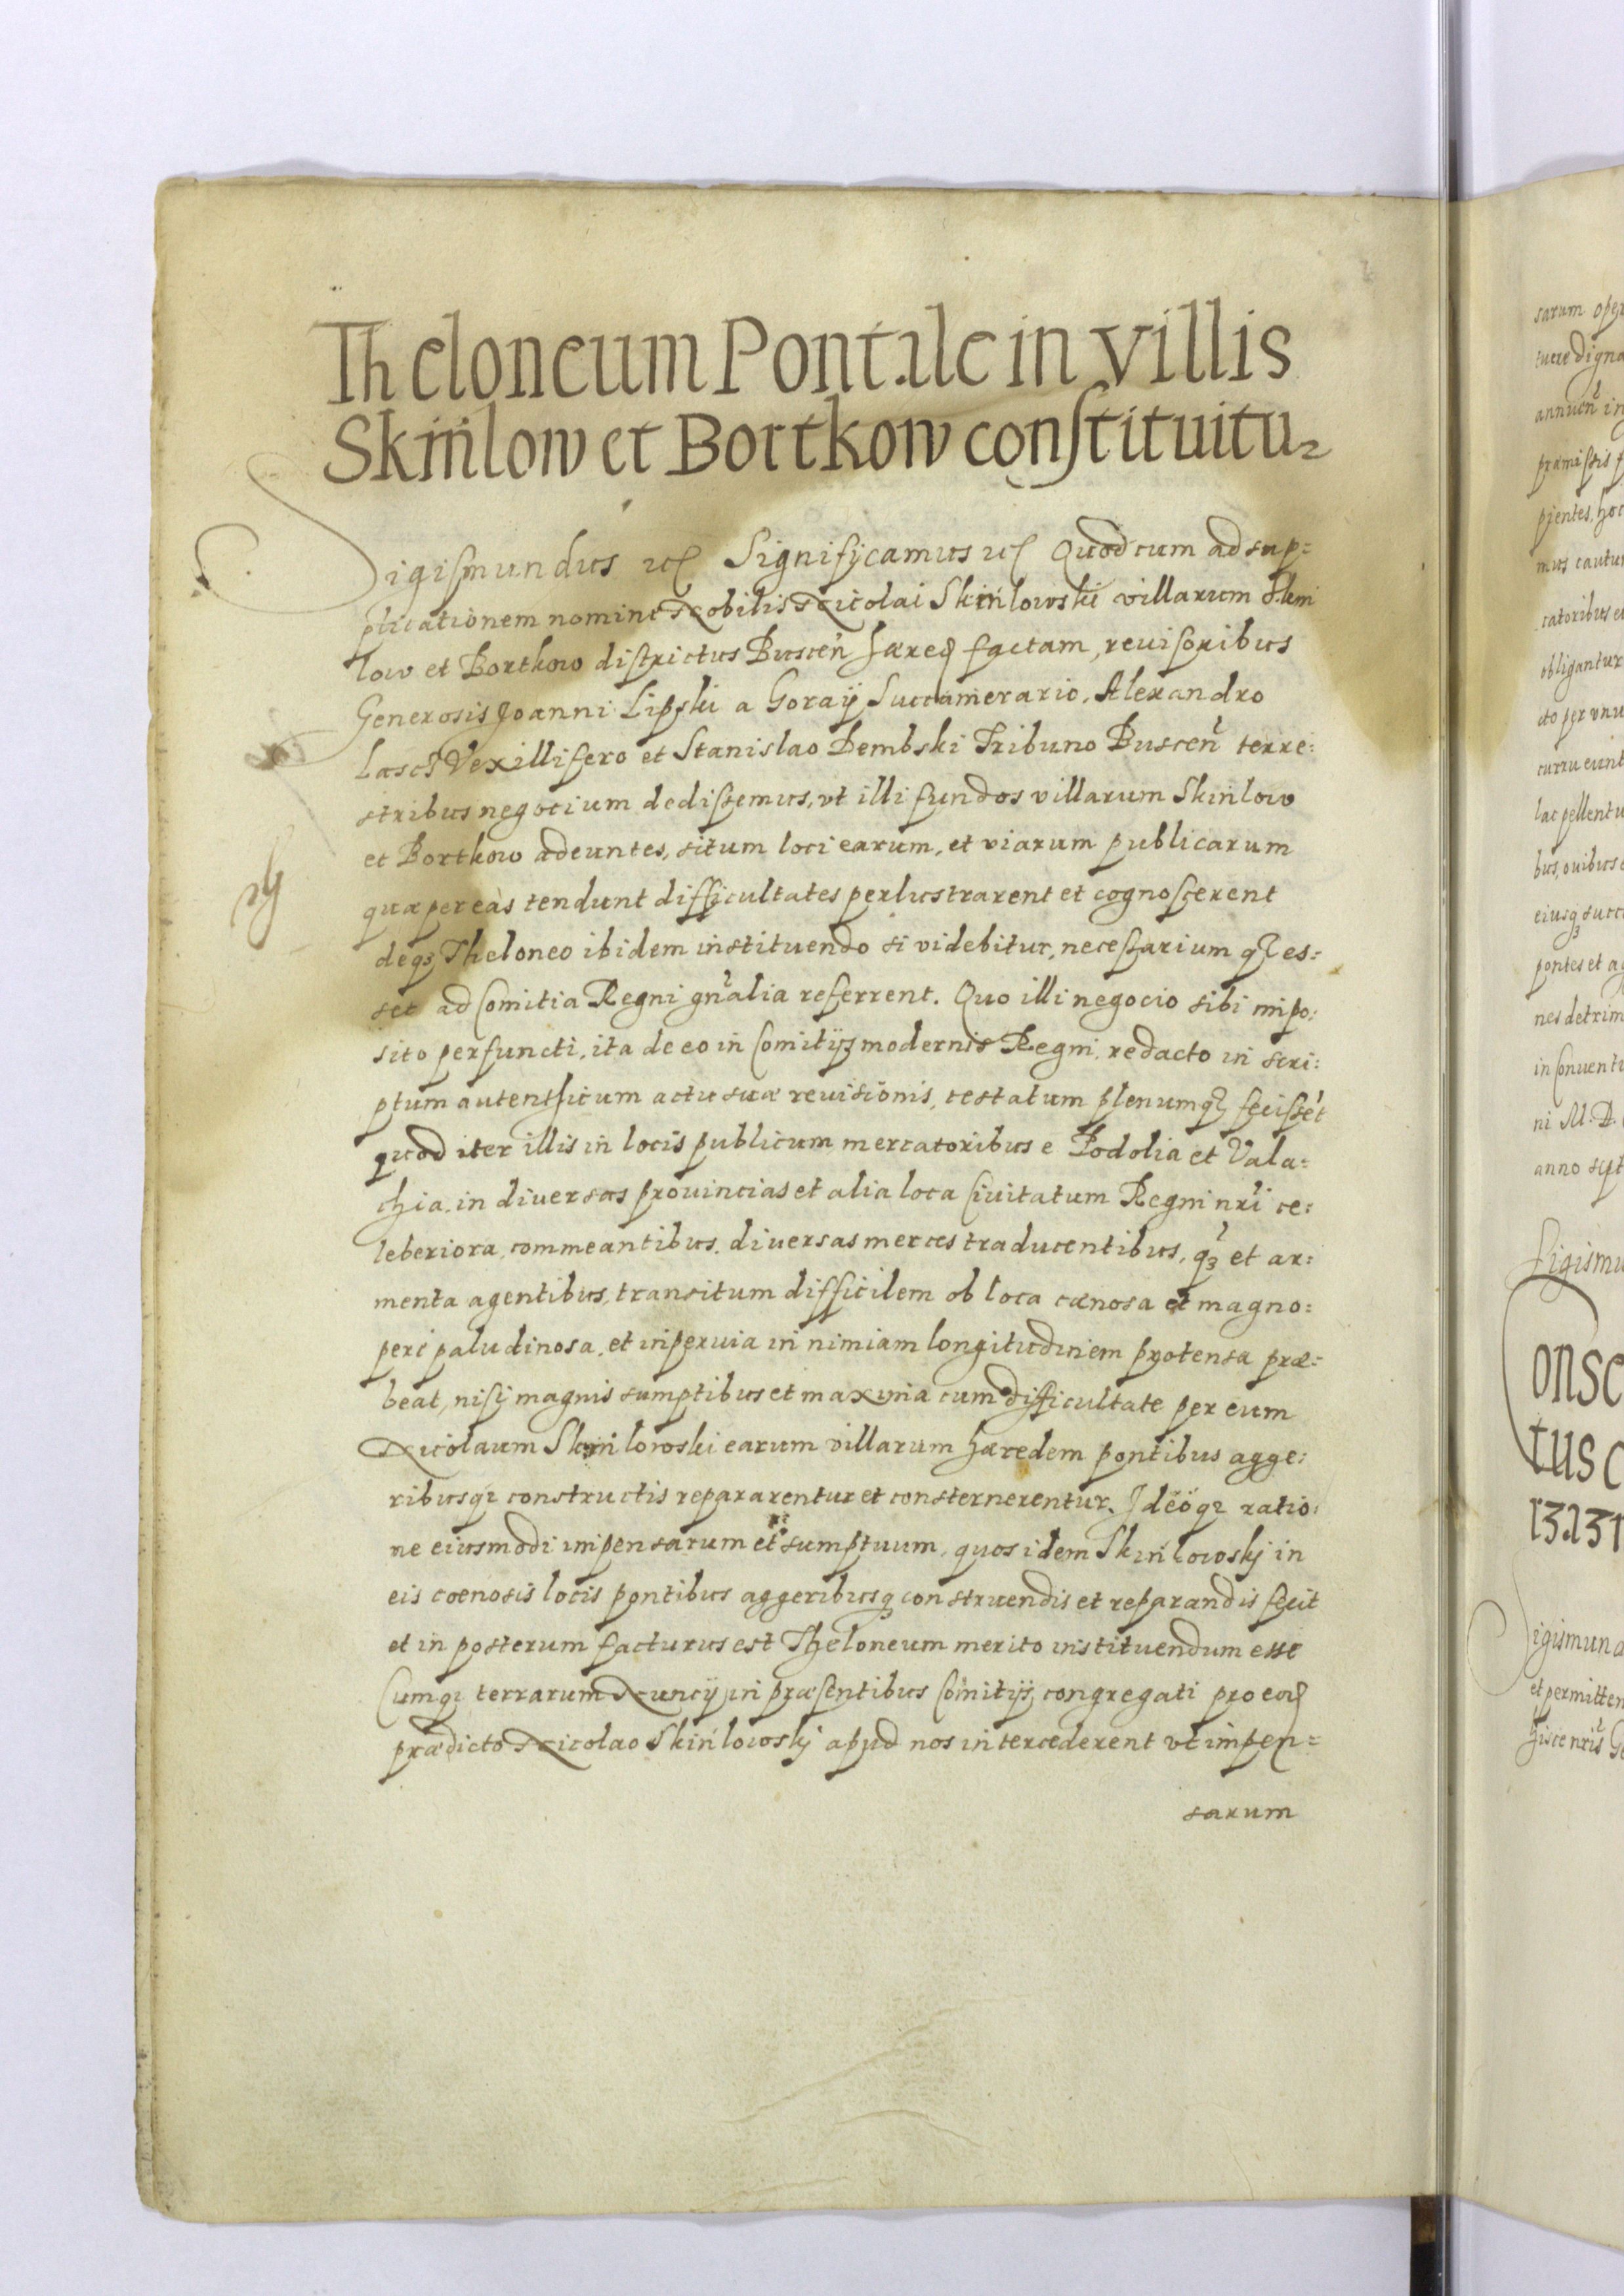 Theloneum Pontale in villis
Skinlow et Bortkow constituitur
Sigismundus etc Significamus etc Quod cum ad sup=
plicationem nomine Nobilis Nicolai Skinlowski villarum Skin
low et Bortkow districtus Buscen haered factam, reuisoribus
Generosis Joanni Lipski a Goraij Succamerario, Alexandro
Lascz Vexillifero et Stanislao Dembski Tribuno Buscen terre:
stribus negocium dedissemus, vt illi fundos villarum Skinlow
et Bortkow adeuntes, situm loci earum, et viarum publicarum
quae per eas tendunt difficultates perlustrarent et cognoscerent
deqз Theloneo ibidem instituendo si videbitur, necessarium qз es:
set ad Comitia Regni gnalia referrent. Quo illi negocio sibi impo:
sito perfuncti, ita de eo in Comitijs modernis Regni, redacto in scri:
ptum autenthicum actu suae reuisionis, testatum plenumqз fecisset
quod iter illis in locis publicum mercatoribus e Podolia et Vala:
chia, in diuersas prouincias et alia loca Ciuitatum Regni nri ce:
leberiora, commeantibus, diuersas merces traducentibus, qз et ar:
menta agentibus, transitum difficilem ob loca caenosa et magno:
pere paludinosa, et inperuia in nimiam longitudinem protensa prae:
beat, nisi magnis sumptibus et maxima cum difficultate per eum
Nicolaum Skinlowski earum villarum haeredem pontibus agge:
ribusqз constructis repararentur et consternerentur. Ideoqз ratio:
ne eiusmodi impensarum et sumptuum, quos idem Skinlowskj in
eis coenosis locis pontibus aggeribusqз construendis et reparandis fecit
et in posterum facturus est Theloneum merito instituendum esse
Cumqз terrarum Nuncij in praesentibus Comitijs congregati pro eod
praedicto Nicolao Skinlowskj apud nos intercederent vt impen=
sarum
sarum
digna
annuen
praemissis
pientes, hoc
mus
catoribus
obligantur
curru eunt
lac pellentu
bus, ouibus
eiusqз succ
pontes et
nes detrim
in Conuent
ni M. D.
anno
Sigismu
onse
tus
Sigismund
et permitten